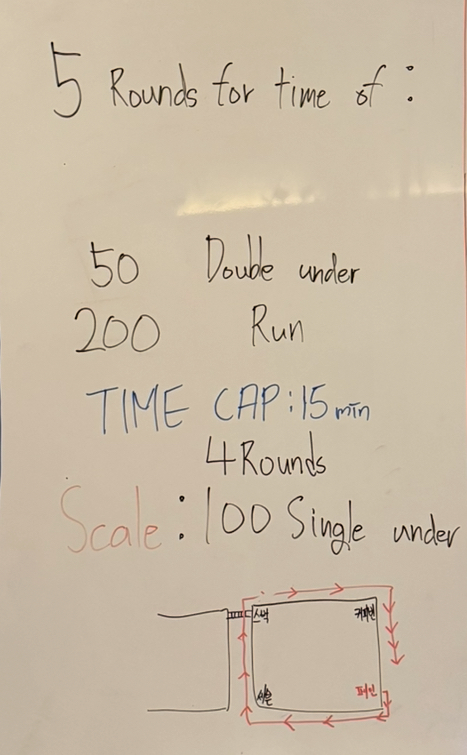 5 Rounds for time of :
50 Double under
200 Run
TIME CAP : 15 min
4 Rounds
Scale : 100 Single under